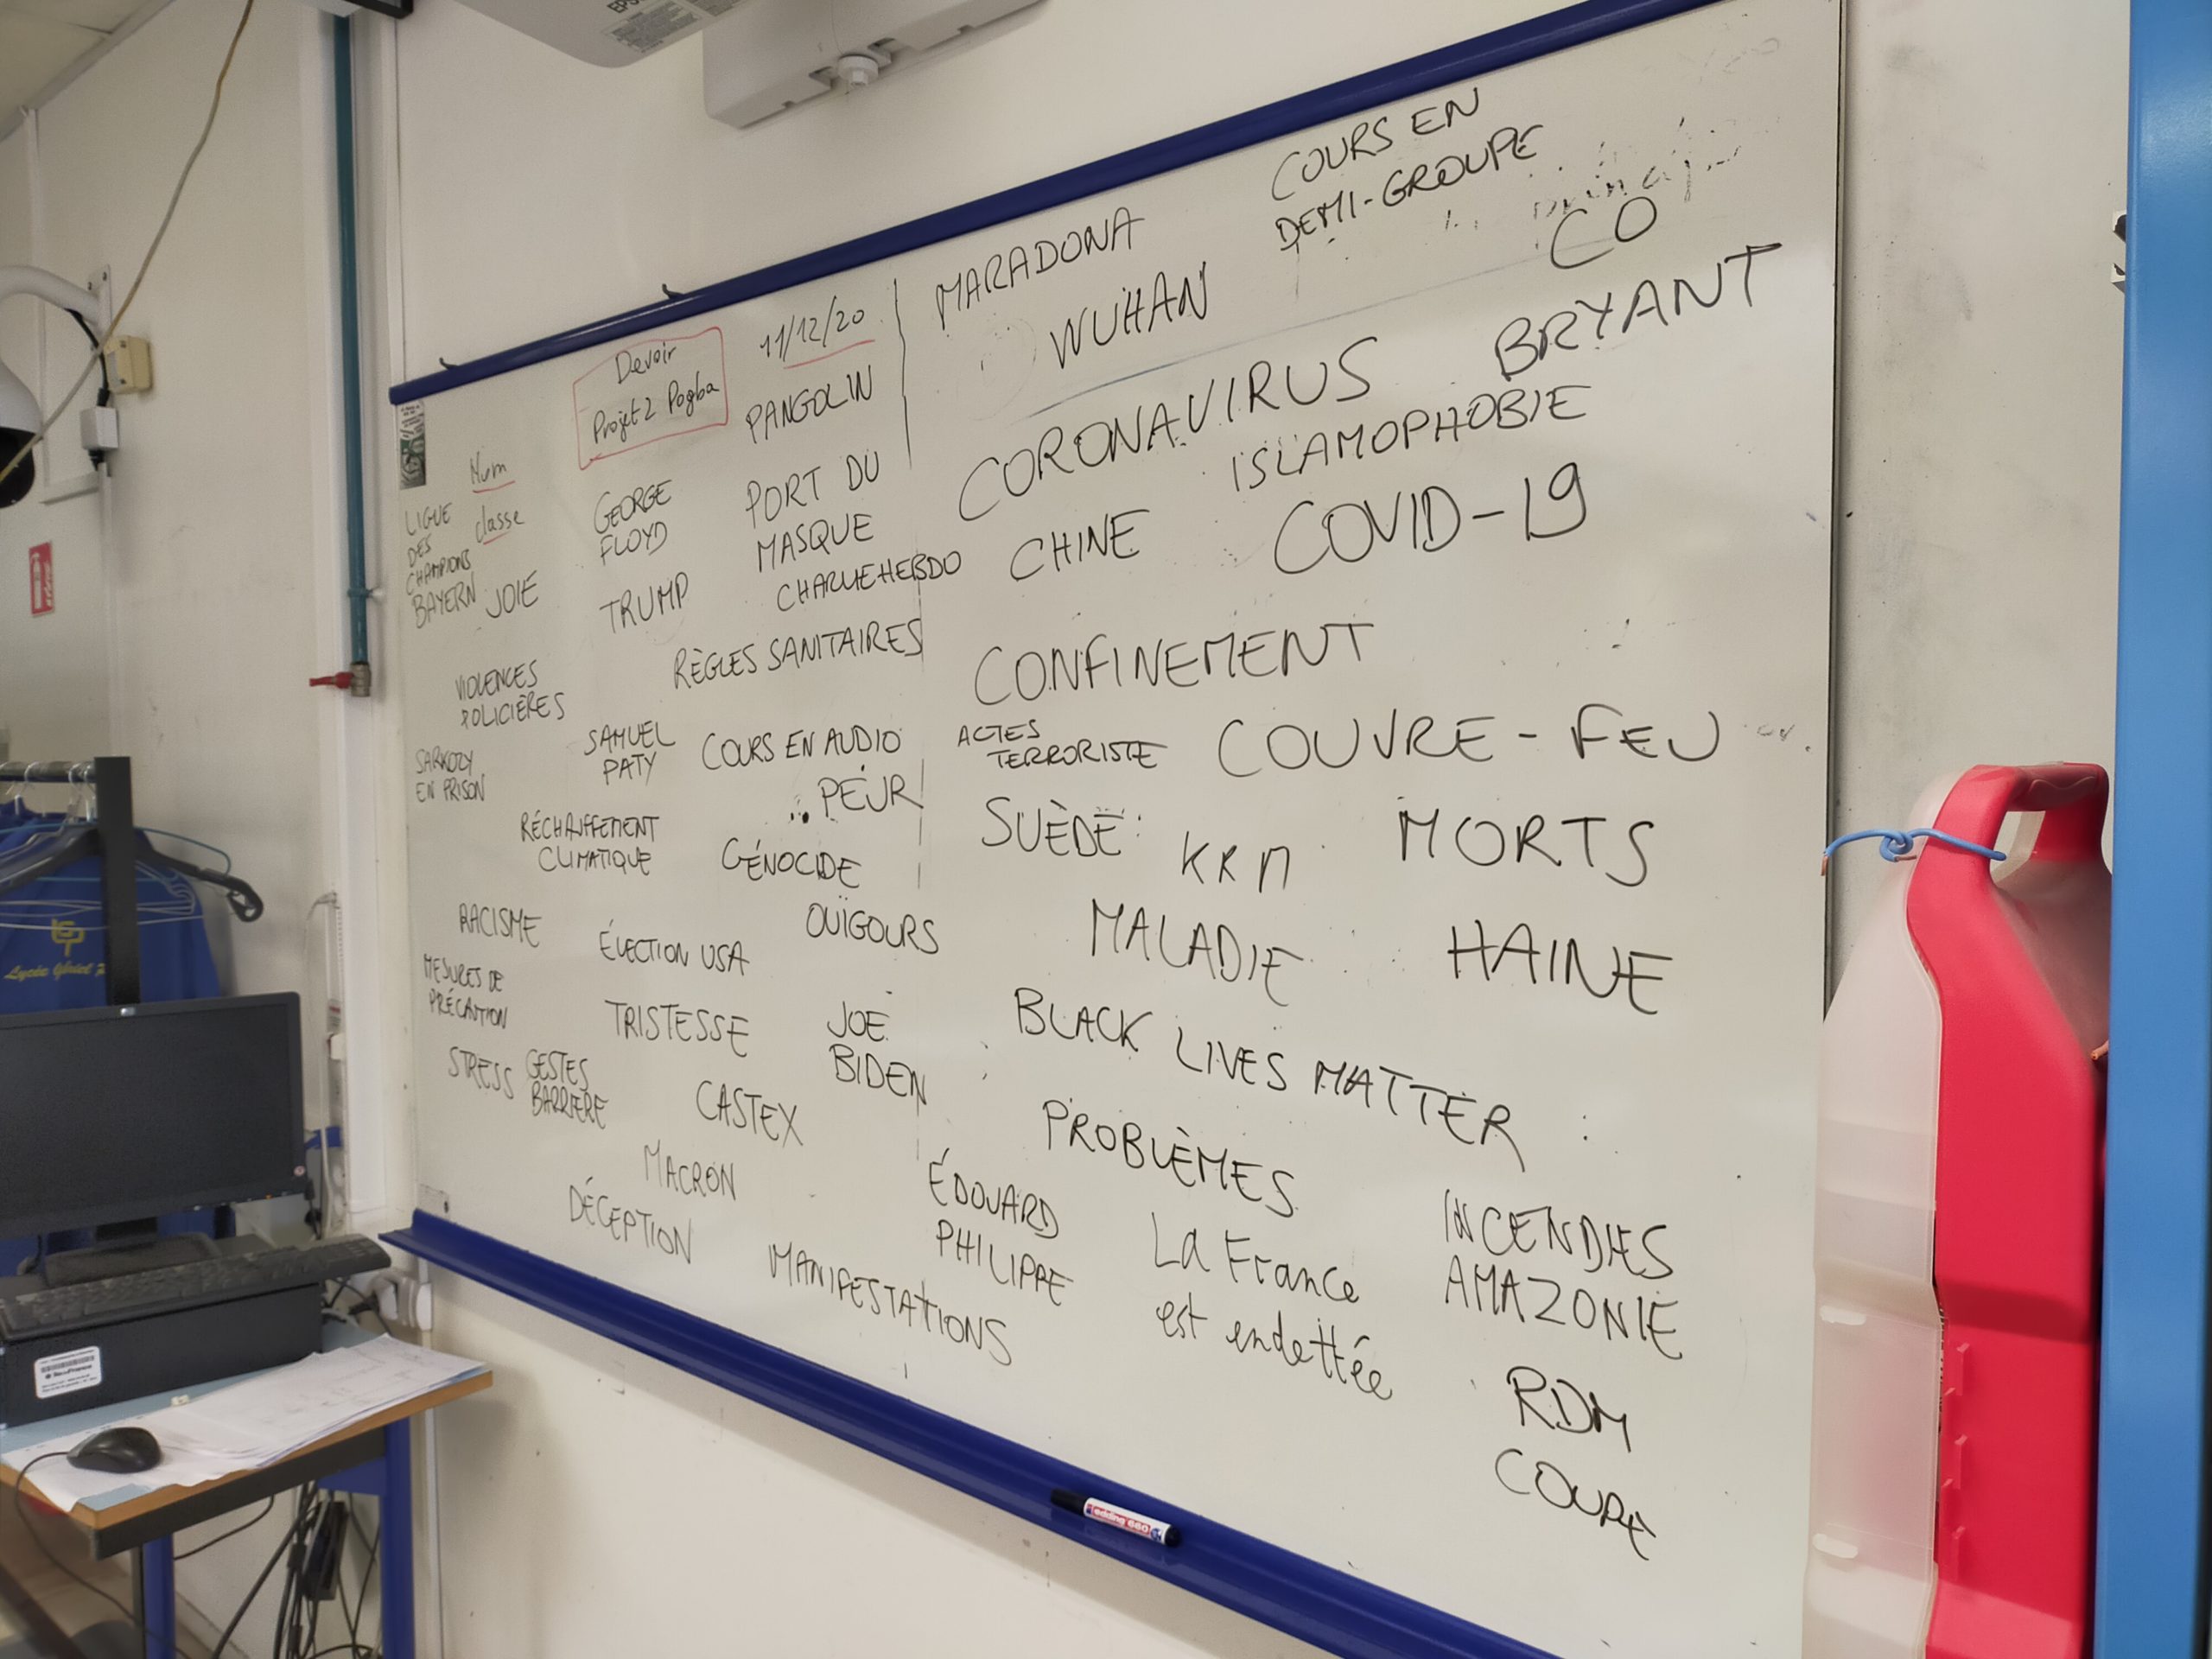 EPS
COURS EN
DEMI-GROUPE
MARADONA
CO
WUHAN
BRYANT
11/12/20
Devoir
Projet 2 Pogba
PANGOLIN
CORONAVIRUS
ISLAMOPHOBIE
Num
classe
LIGUE
DES
CHAMPIONS
BAYERN
JOIE
GEORGE
FLOYD
PORT DU
MASQUE
CHARLIEHEBDO
CHINE
COVID-19
TRUMP
RÈGLES SANITAIRES
CONFINEMENT
VIOLENCES
POLICIÈRES
SAMUEL
PATY
COURS EN AUDIO
ACTES
TERRORISTE
COUVRE-FEU
SARKOZY
EN PRISON
PEUR
SUÈDE
KKM
MORTS
RÉCHAUFFEMENT
CLIMATIQUE
GÉNOCIDE
RACISME
ÉLECTION USA
OUÏGOURS
MALADIE
HAINE
MESURES DE
PRÉCAUTION
TRISTESSE
JOE
BIDEN
BLACK LIVES MATTER
STRESS
GESTES
BARRIERE
CASTEX
PROBLÈMES
MACRON
DÉCEPTION
ÉDOUARD
PHILIPPE
MANIFESTATIONS
La France
est endettée
INCENDIES
AMAZONIE
RDM
COUPE
Lycée
edding 660
hp